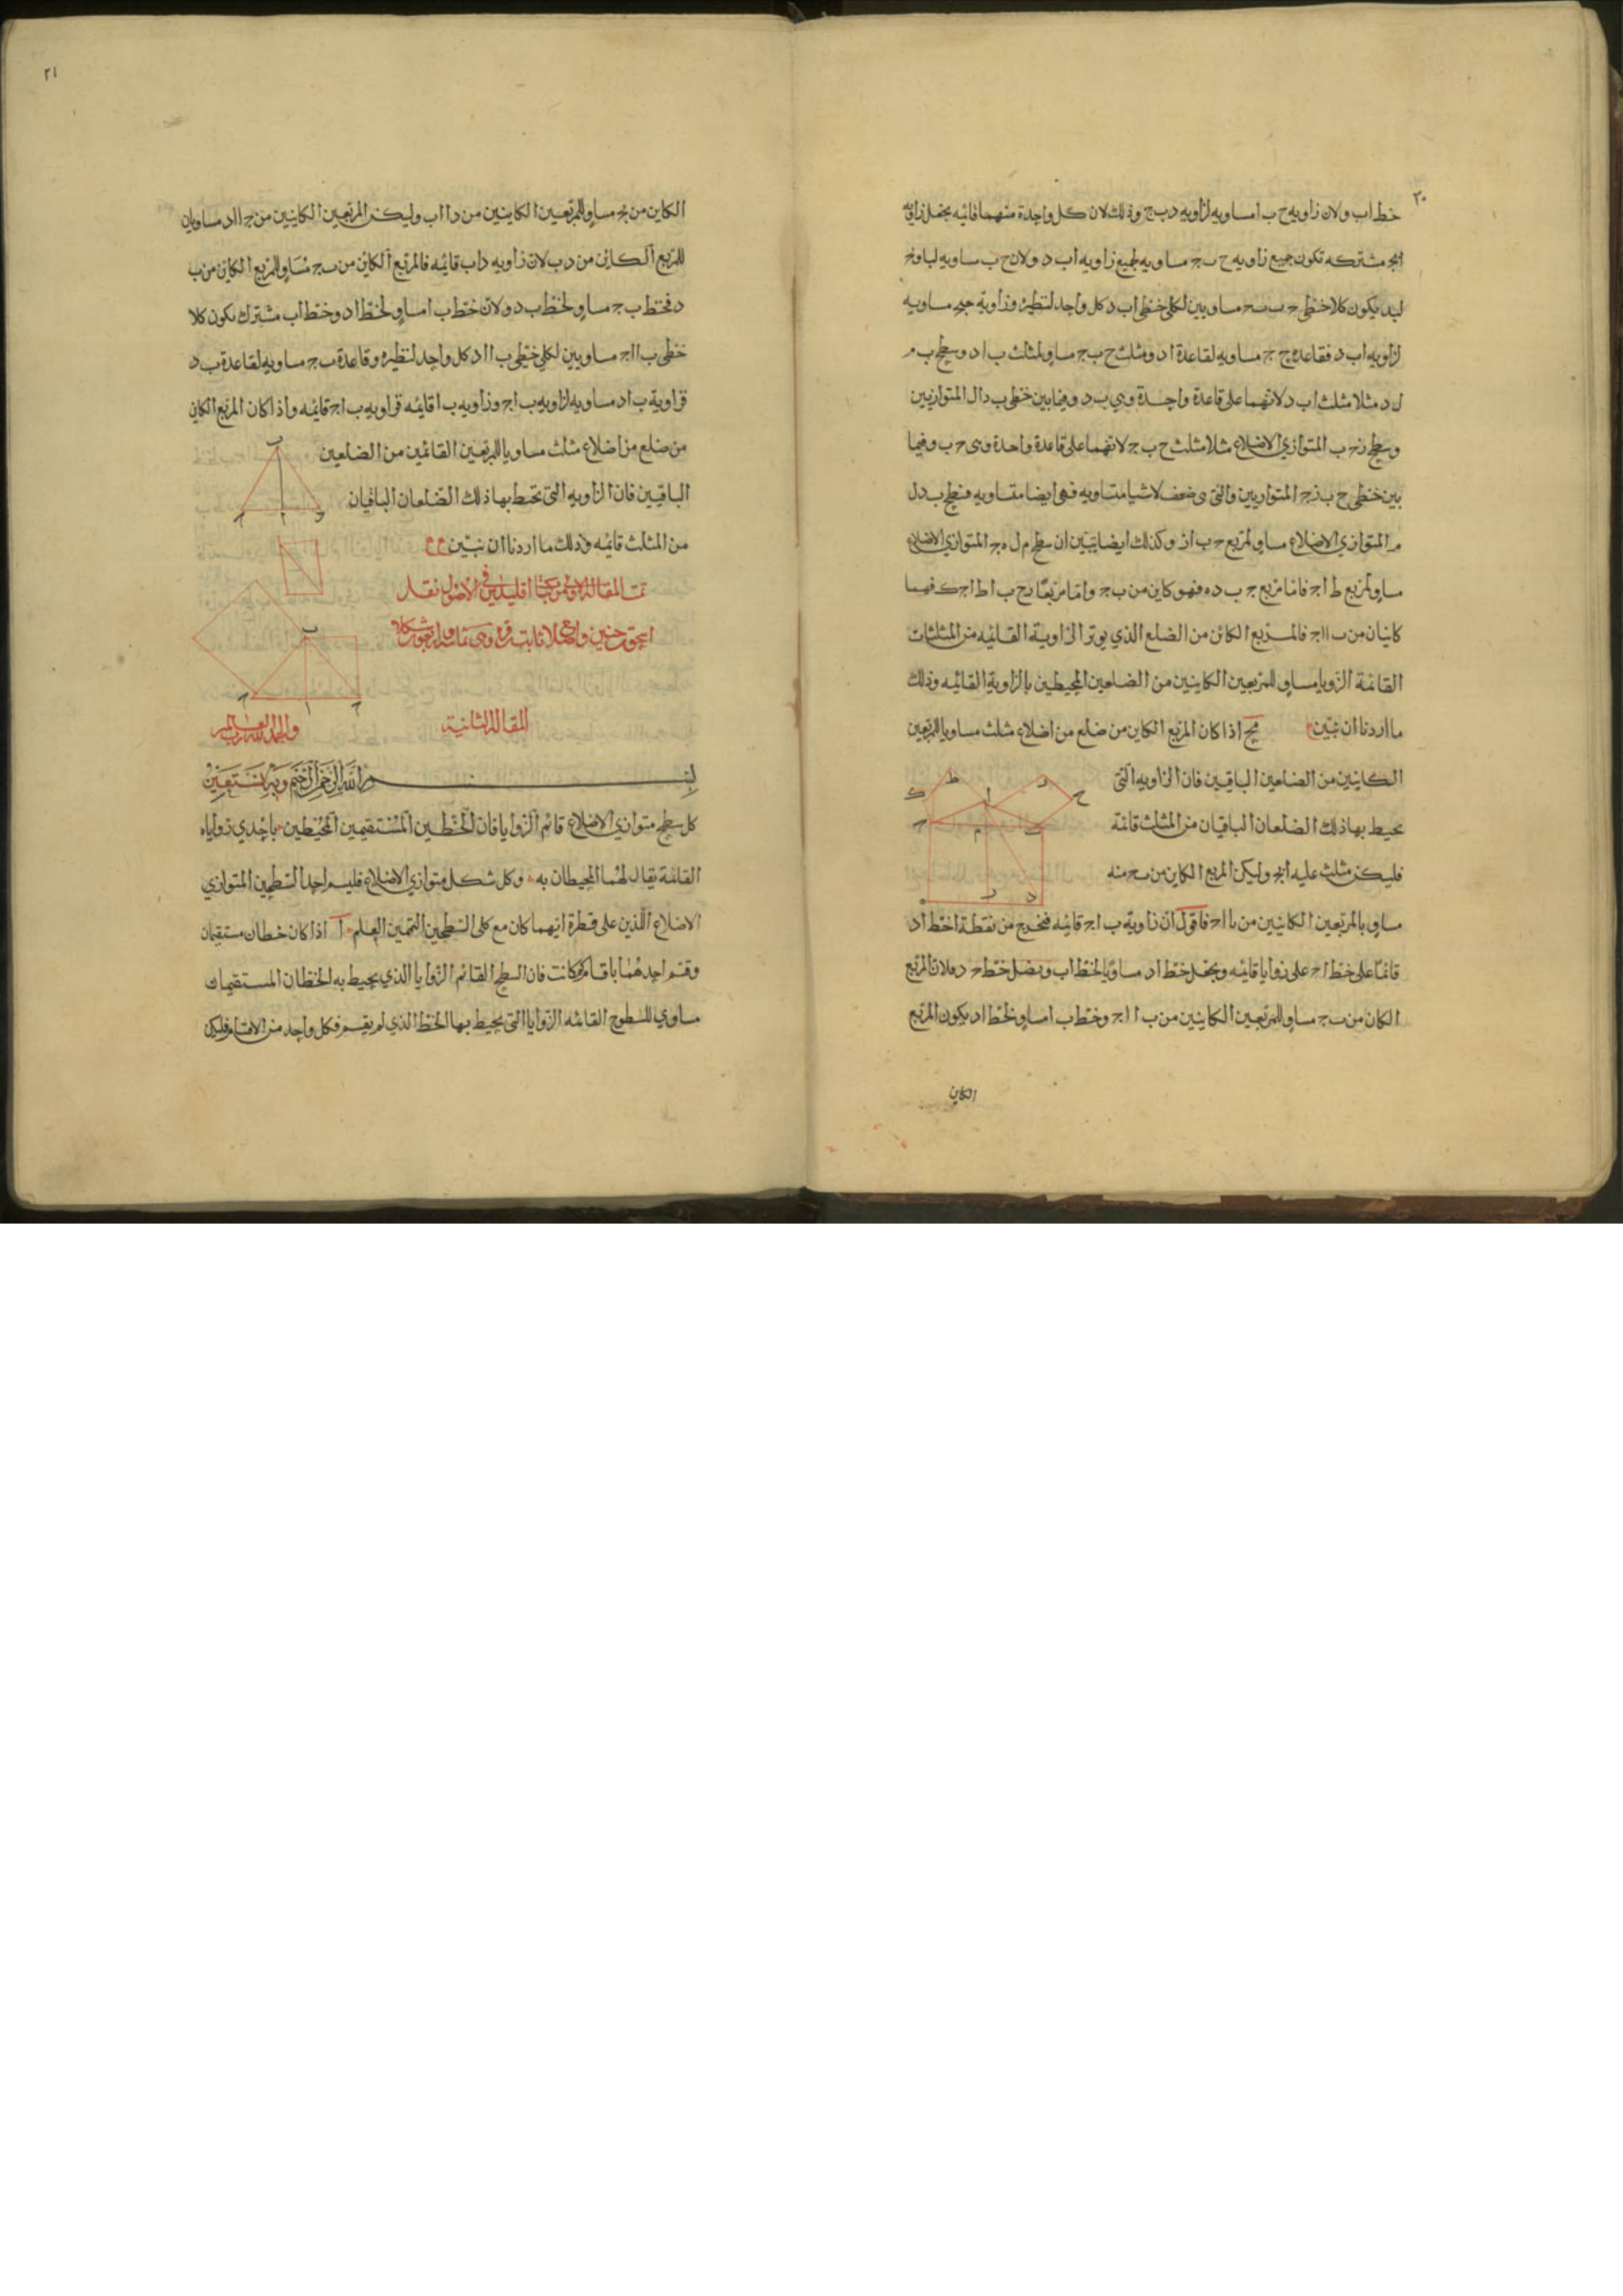 ٢٠
خط اب ولان زاويه ح ب ا مساويه لزاويه د ب ج وذلك لان كل واحدة منهما قائمه نجعل زاويه
ابج مشتركه تكون جميع زاويه ح ب ج مساويه لجميع زاويه اب د ولان ح ب مساويه لبا و
ليد يكون كلا خطى ح ب ب ج مساويين لكلى خطى اب د كل واحد لنظيره وزاوية مساويه
لزاويه اب د فقاعده ح ج مساويه لقاعدة ا د ومثلث ح ب ج مساو لمثلث ب ا د وسطح ب م
ل د مثلا مثلث اب د لانهما على قاعدة واحدة وهي ب د وفيما بين خطى ب د ال المتوازيين
وسطح زح ب المتوازي الاضلاع مثلا مثلث ح ب ج لانهما على قاعدة واحدة وهى ح ب وفيما
بين خطى ح ب زج المتوازيين والتى هى ضعف لاشيا متساويه فهى ايضا متساويه فسطح ب د ل
م المتوازي الاضلاع مساو لمربع ح ب از وكذلك ايضا يتبين ان سطح م ل ه ج المتوازي الاضلاع
مساو لمربع ط اج فاما مربع ج ب د ه فهو كاين من ب ج واما مربعا زح ب ا ط اجك فهما
كائنان من ب ا اج فالمربع الكائن من الضلع الذي يوتر الزاوية القائمه من المثلثات
القائمة الزوايا مساو للمربعين الكاينين من الضلعين المحيطين بالزاوية القائمه وذلك
ما اردنا ان نبين مح اذا كان المربع الكاين من ضلع من اضلاع مثلث مساويا للمربعين
الكاينين من الضلعين الباقيين فان الزاويه التى
يحيط بها ذلك الضلعان الباقيان من المثلث قائمة
فليكن مثلث عليه ابج وليكن المربع الكاين من ب ج منه
مساو بالمربعين الكاينين من ب ا اج فاقول ان زاوية ب اج قائمه فنخرج من نقطة ا خط ا د
قائما على خط اج على زوايا قائمه ونجعل خط ا د مساويا لخط اب ونصل خط ج د فلان المربع
الكائن من ب ج مساو للمربعين الكاينين من ب ا اج وخط ب ا مساو لخط ا د يكون المربع
الكاين
٢١
الكاين من بج مساو للمربعين الكاينين من د ا اب وليكن المربعين الكاينين من ج ا اد مساويان
للمربع الكائن من د ب لان زاويه د اب قائمه فالمربع الكائن من ب ج مساو للمربع الكاين من ب
د فخط ب ج مساو لخط ب د ولان خط ب ا مساو لخط ا د وخط اب مشترك يكون كلا
خطى ب ا اج مساويين لكلى خطى ب ا اد كل واحد لنظيره وقاعدة ب ج مساويه لقاعدة ب د
فزاوية ب ا د مساويه لزاويه ب اج وزاويه ب ا قائمه فزاويه ب اج قائمه واذا كان المربع الكاين
من ضلع من اضلاع مثلث مساويا للمربعين القائمين من الضلعين
الباقيين فان الزاويه التى تحيط بها ذلك الضلعان الباقيان
من المثلث قائمه وذلك ما اردنا ان نبين
تمت المقاله الاولى من كتاب اقليدس فى الاصول نقل
اسحق بن حنين واصلاح ثابت بن قره وهى ثمانيه واربعون شكلا
والحمد لله رب العالمين
المقالة الثانية
بسم الله الرحمن الرحيم وبه نستعين
كل سطح متوازي الاضلاع قائم الزوايا فان الخطين المستقيمين المحيطين باحدي زواياه
القائمة يقال لهما المحيطان به وكل شكل متوازي الاضلاع فليسم احد السطحين المتوازي
الاضلاع الذين على قطرة ايهما كان مع كلى السطحين المتممين العلم ا اذا كان خطان مستقيمان
وقسم احدهما باقسام كم كانت فان السطح القائم الزوايا الذي يحيط به الخطان المستقيمان
مساوي للسطوح القائمه الزوايا التى يحيط بها الخط الذي لم يقسم وكل واحد من الاقسام فليكن